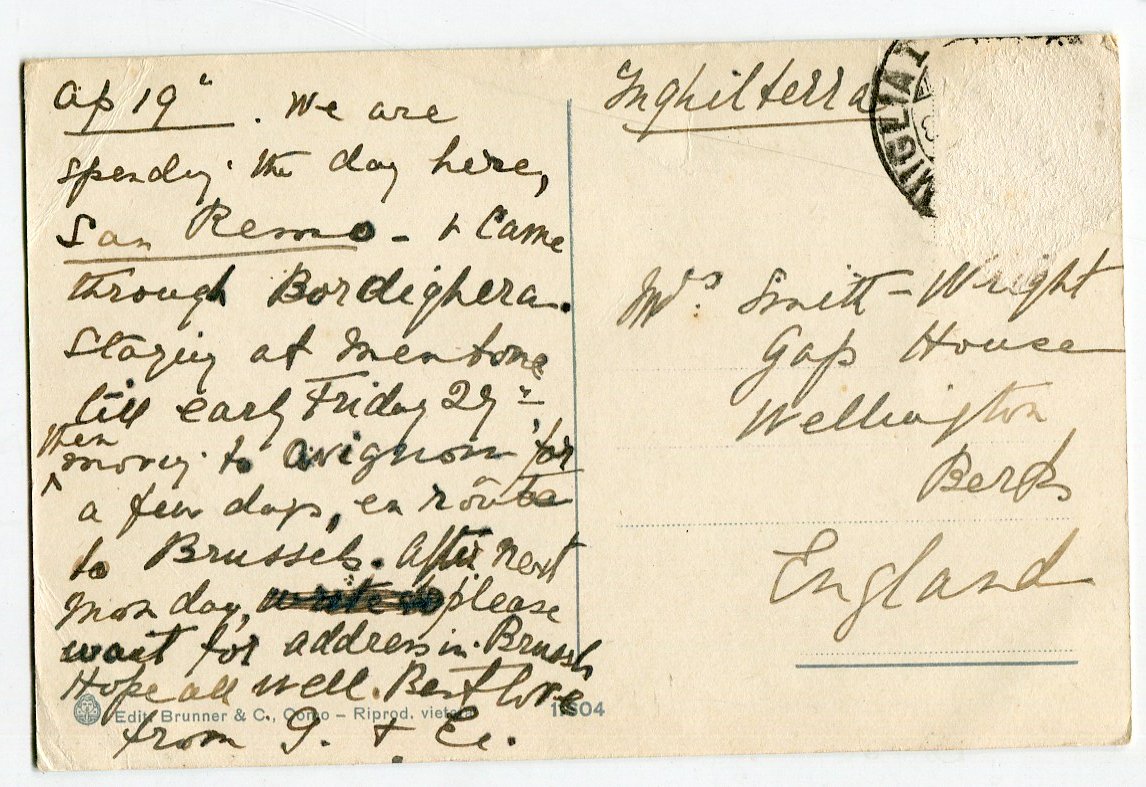 Ap 19". We are
spending the day here,
San Remo - & Came
through Bordighera.
Staying at Mentone
till early Friday 29th,
then
moving to Avignon for
a few days, en route
to Brussels. After next
Monday, please
wait for address in Brussels
Hope all well. Best love
from G. + Ee.
Edit. Brunner & C., Como – Riprod. vietata
Inghilterra
MIGLIA
Mrs. Smith-Wright
Gap House
Wellington
Berks
England